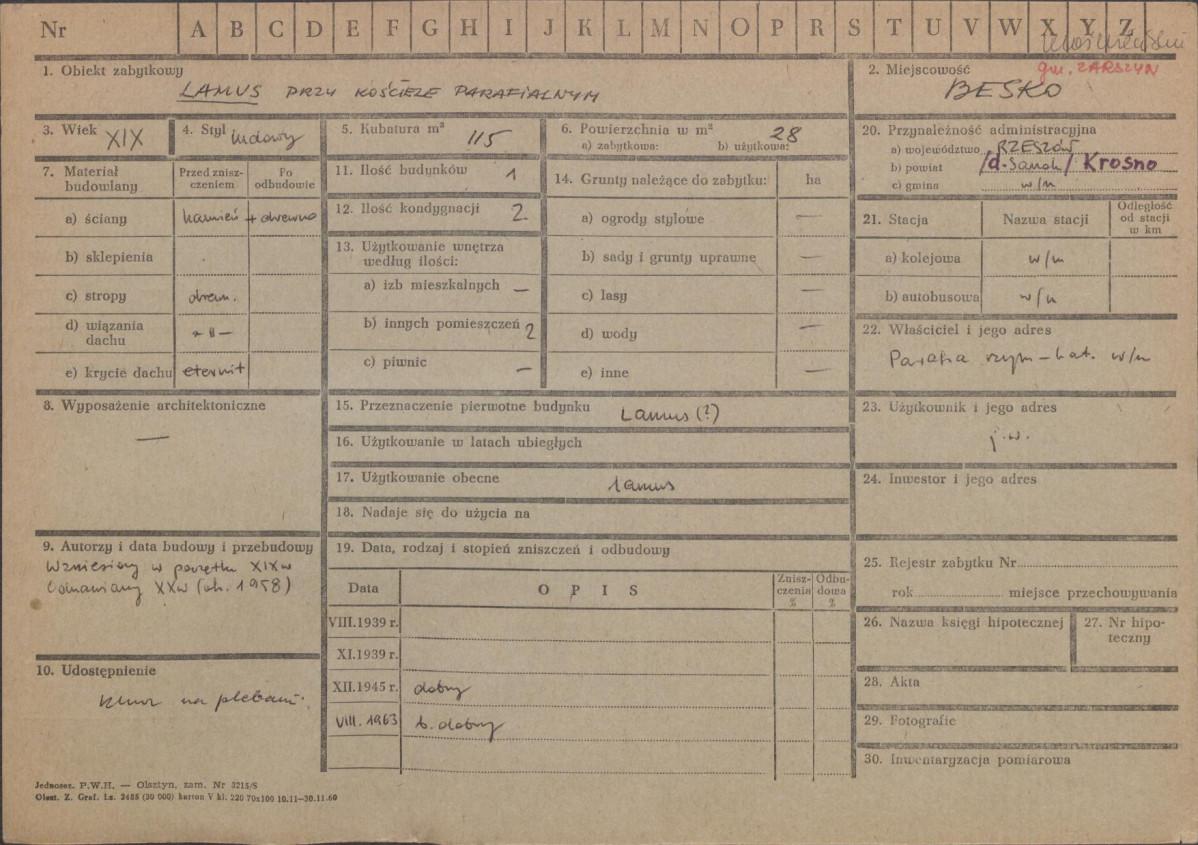 Nr A B C D E F G H I J K L M N O P R S T U V W X Y Z
gm. ZARSZYN
1. Obiekt zabytkowy
LAMUS PRZY KOŚCIELE PARAFIALNYM
2. Miejscowość
BESKO
3. Wiek XIX
4. Styl ludowy
5. Kubatura m³ 115
6. Powierzchnia w m² 28
a) zabytkowa: b) użytkowa:
7. Materiał budowlany
Przed znisz-
czeniem
Po
odbudowie
a) ściany kamień + drewno
b) sklepienia
c) stropy drewn.
d) wiązania
dachu -"-
e) krycie dachu eternit
8. Wyposażenie architektoniczne
—
9. Autorzy i data budowy i przebudowy
Wzniesiony w początku XIXw
Odnawiany XXw (ok. 1958)
10. Udostępnienie
Klucz na plebani.
11. Ilość budynków 1
12. Ilość kondygnacji 2.
13. Użytkowanie wnętrza
według ilości:
a) izb mieszkalnych —
b) innych pomieszczeń 2
c) piwnic —
14. Grunty należące do zabytku: ha
a) ogrody stylowe —
b) sady i grunty uprawne —
c) lasy —
d) wody —
e) inne —
15. Przeznaczenie pierwotne budynku Lamus (?)
16. Użytkowanie w latach ubiegłych
17. Użytkowanie obecne lamus
18. Nadaje się do użycia na
19. Data, rodzaj i stopień zniszczeń i odbudowy
Data OPIS
Znisz-
czenia
%
Odbu-
dowa
%
VIII.1939 r.
XI.1939 r.
XII.1945 r. dobry
VIII. 1963 b. dobry
20. Przynależność administracyjna
a) województwo RZESZÓW
b) powiat /d. Sanok/ Krosno
c) gmina w/m
21. Stacja Nazwa stacji
Odległość
od stacji
w km
a) kolejowa w/m
b) autobusowa w/m
22. Właściciel i jego adres
Parafia rzym-kat. w/m
23. Użytkownik i jego adres
j.w.
24. Inwestor i jego adres
25. Rejestr zabytku Nr
rok miejsce przechowywania
26. Nazwa księgi hipotecznej
27. Nr hipo-
teczny
28. Akta
29. Fotografie
30. Inwentaryzacja pomiarowa
Jednosez. P.W.H. — Olsztyn, zam. Nr 3215/S
Olszt. Z. Graf. Lz. 2485 (30 000) karton V kl. 220 70x100 10.11—30.11.60